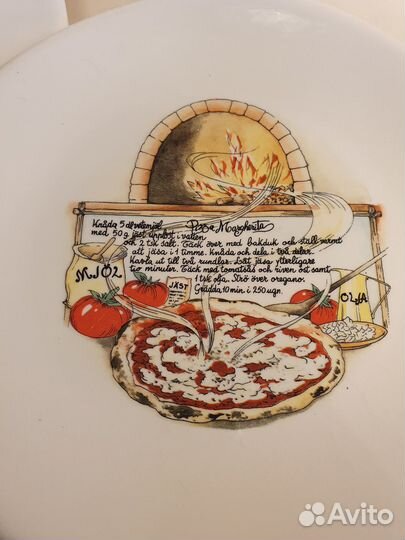 Pizza Margherita
Knåda 5 dl vetemjöl
med 50 g jäst upplöst i vatten
och 2 tsk salt. Täck över med bakduk och ställ varmt
att jäsa i 1 timme. Knåda och dela i två delar.
Kavla ut till två rundlar. Låt jäsa ytterligare
tio minuter. Täck med tomatsås och riven ost samt
1 tsk olja. Strö över oregano.
Grädda 10 min. i 250 ugn.
MJÖL
JÄST
OLJA
Avito